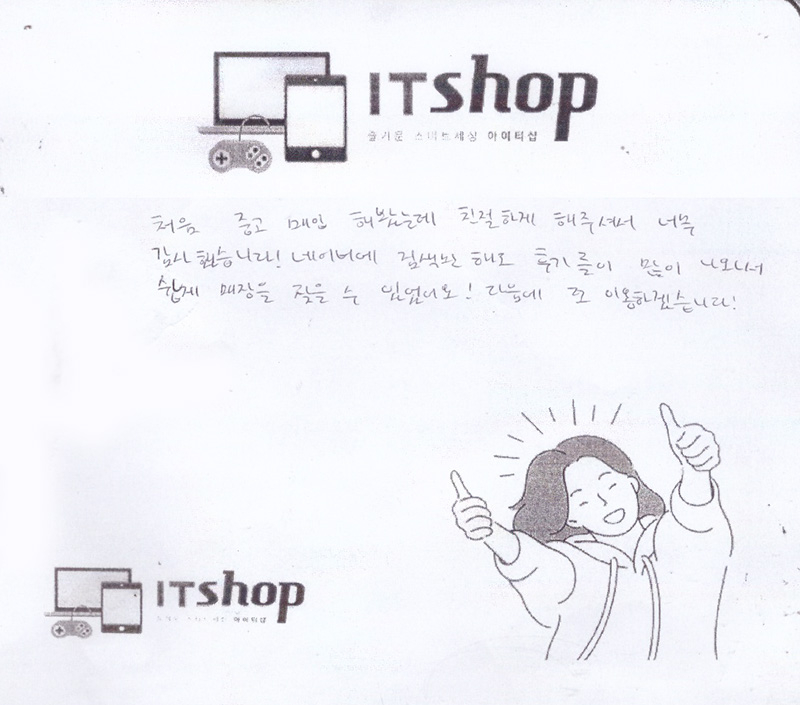 ITshop
즐거운 스마트세상 아이티샵
처음 중고 매입 해봤는데 친절하게 해주셔서 너무
감사했습니다! 네이버에 검색만 해도 후기들이 많이 나와서
쉽게 매장을 찾을 수 있었어요! 다음에 또 이용하겠습니다!
ITshop
즐거운 스마트세상 아이티샵